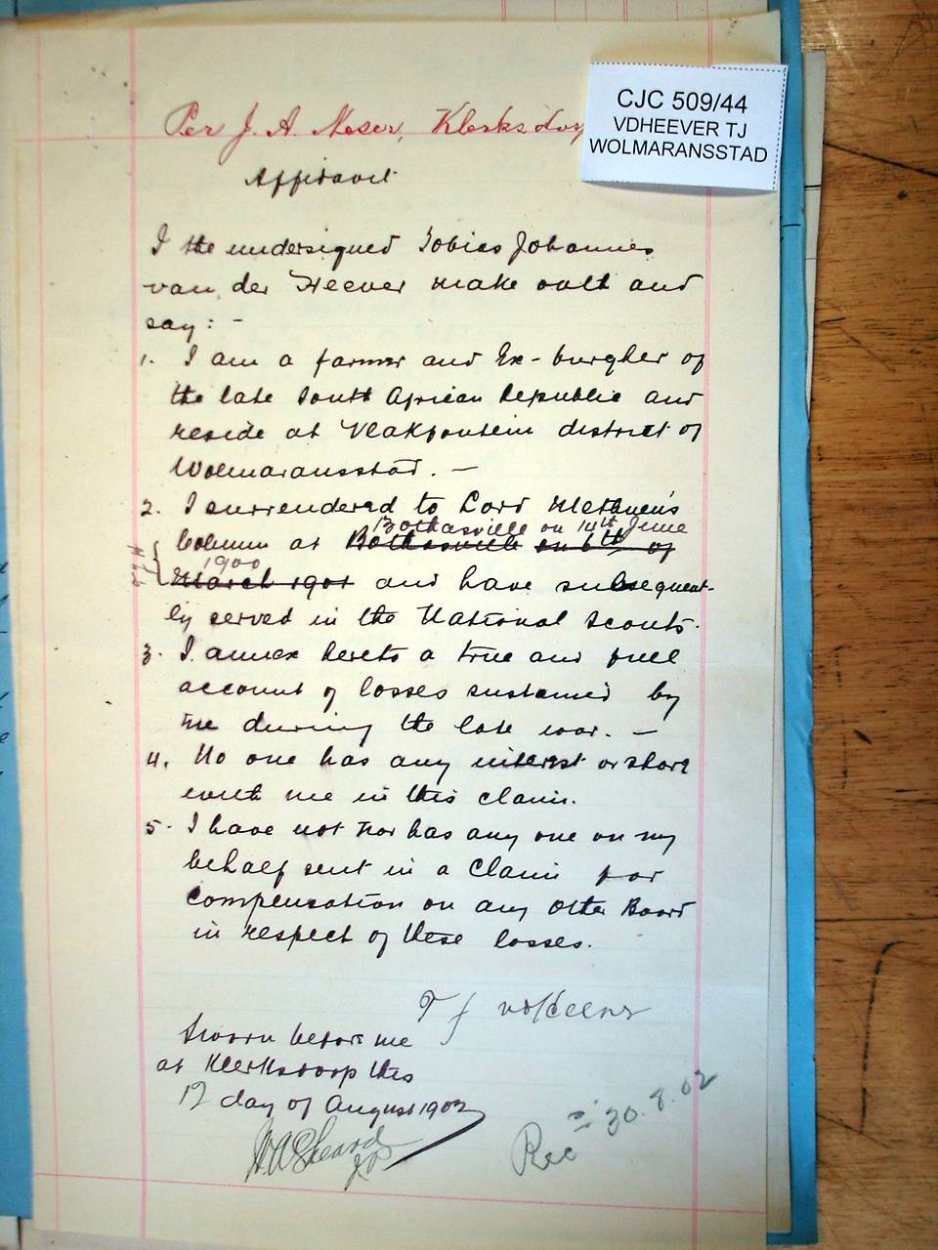 CJC 509/44
VDHEEVER TJ
WOLMARANSSTAD
Per J. A. Neser, Klerksdorp
Affidavit
I the undersigned Tobias Johannes
van der Heever make oath and
say: -
1. I am a farmer and Ex-burgher of
the late South African Republic and
reside at Vlakfontein district of
Wolmaransstad. -
2. I surrendered to Lord Methuen's
Bothasville on 14th June
Column at Bothasville on 6th of
1900
March 1901 and have subsequent-
ly served in the National Scouts.
3. I annex hereto a true and full
account of losses sustained by
me during the late war. -
4. No one has any interest or share
with me in this claim.
5. I have not nor has any one on my
behalf sent in a Claim for
compensation on any other Board
in respect of these losses.
T J vdHeever
Sworn before me
at Klerksdorp this
12 day of August 1902
Rec 30.8.02